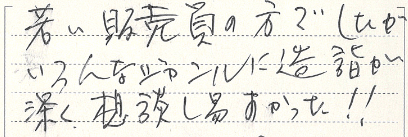 若い販売員の方でしたが
いろんなジャンルに造詣が
深く想談し易すかった!!